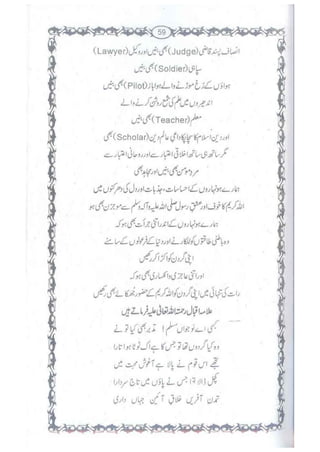 59
انصاف پسند قاضی (Judge) بھی بنیں اور وکیل (Lawyer)
سپاہی (Soldier) بھی بنیں
ہواؤں کے رُخ موڑنے والے ہوا باز (Pilot) بھی بنیں
اندھیروں میں علم کی شمع روشن کرنے والے
معلم (Teacher) بھی بنیں
اور دین اسلام کا سچا پکا داعی عالم دین (Scholar) بھی
مگر ساتھ ہی ساتھ اخلاقی اعتبار سے اور روحانی اعتبار سے
مرد مومن بھی بنیں اور مجاہد بھی
ہمارے ہونہاروں کے احساسات، جذبات اور دل کی دھڑکنوں میں
اللہ کریم کا خوف اور عشق رسول صلی اللہ علیہ وسلم سے موجزن بھی ہو
ہمارے ہونہاروں کے اندر اتنی جرأت بھی ہو کہ
وہ باطل طاقتوں کو للکارنے اور دنیا کے فرعونوں کے سامنے
اپنی گردن کو اکڑا کر رکھیں
اور اتنی عاجزی و انکساری بھی ہو کہ
رات کی تنہائی میں اپنی گردن کو اللہ کریم کے حضور جھکائے بھی رکھیں
علامہ اقبال رحمتہ اللہ تعالیٰ علیہ فرماتے ہیں
کبھی اے نوجواں مسلم! تدبر بھی کیا تو نے
وہ کیا گردوں تھا تو جس کا ہے اک ٹوٹا ہوا تارا
تجھے اس قوم نے پالا ہے آغوش محبت میں
کچل ڈالا تھا جس نے پاؤں میں تاج سردارا
تمدن آفریں خلاق آئین جہاں داری